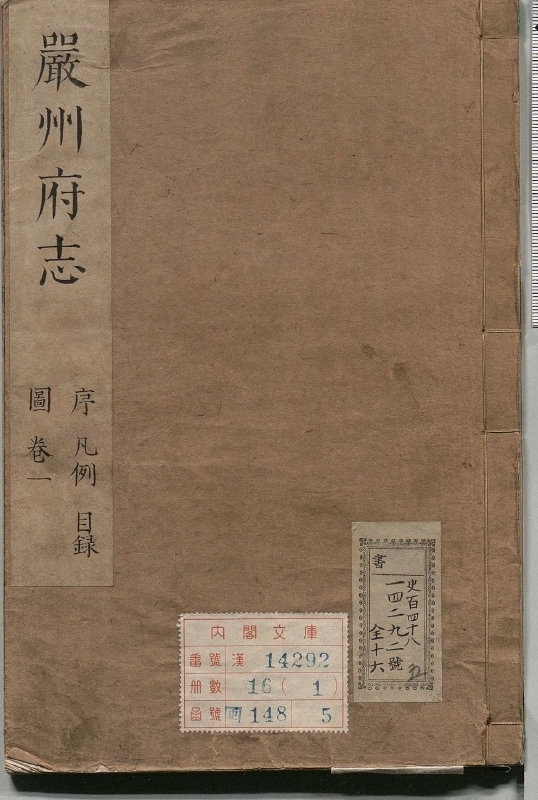 嚴州府志
序 凡例 目録
圖 卷一
書
史百四十八
一四二九二號
全十六
內閣文庫
番號 漢 14292
册數 16 ( 1 )
函號 148 5